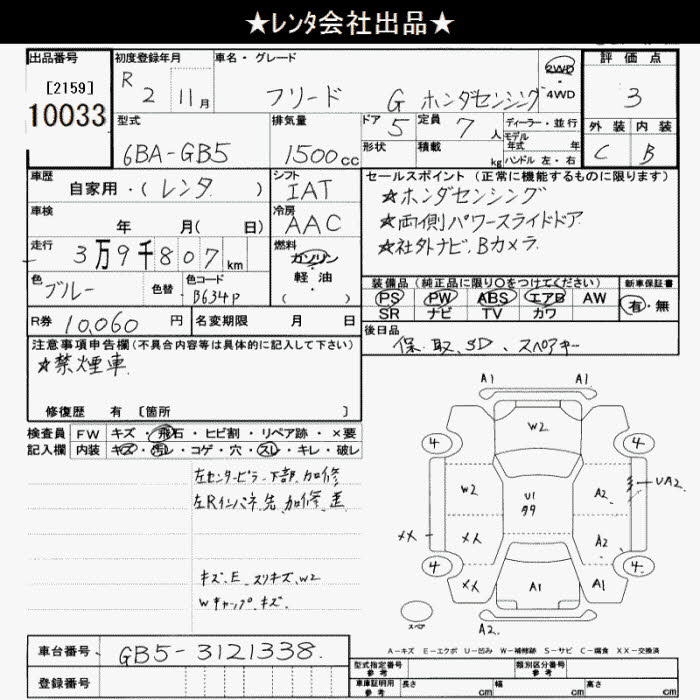 ★レンタ会社出品★
出品番号
[2159]
10033
初度登録年月
R 2年 11月
車名・グレード
フリード G ホンダセンシング
2WD
4WD
評価点
3
外装 内装
C B
型式
6BA-GB5
排気量
1500cc
ドア
5
定員
7人
形状
積載
kg
ディーラー・並行
モデル年式 年
ハンドル 左・右
車歴
自家用・(レンタ)
シフト
IAT
車検
年 月( 日)
冷房
AAC
走行
3万9千807km
燃料
ガソリン
軽・油
( )
色
ブルー
色替
色コード
B634P
R券 10,060円
名変期限 月 日
セールスポイント(正常に機能するものに限ります)
☆ホンダセンシング
☆両側パワースライドドア
☆社外ナビ、Bカメラ
装備品(純正品に限り○をつけてください)
PS PW ABS エアB AW
SR ナビ TV カワ
新車保証書
有・無
後日品
保、取、SD、スペアキー
注意事項申告欄(不具合内容等は具体的に記入して下さい)
☆禁煙車
修復歴 有 [箇所 ]
検査員記入欄
FW キズ・飛石・ヒビ割・リペア跡・×要
内装 キズ・汚レ・コゲ・穴・スレ・キレ・破レ
左センターピラー下部加修
左Rインパネ先、加修、歪
キズ、E、スリキズ、W2
Wキャップキズ、
A1
A1
W2
4
4
W2
U1
A2
UA2
XX
XX
A2
4
4
XX
A1
A1
スペア
A2
A-キズ E-エクボ U-凹み W-補修跡 S-サビ C-腐食 XX-交換済
車台番号
GB5-3121338
登録番号
型式指定番号 参考
類別区分番号 参考
車庫証明用 参考
長さ cm
幅 cm
高さ cm